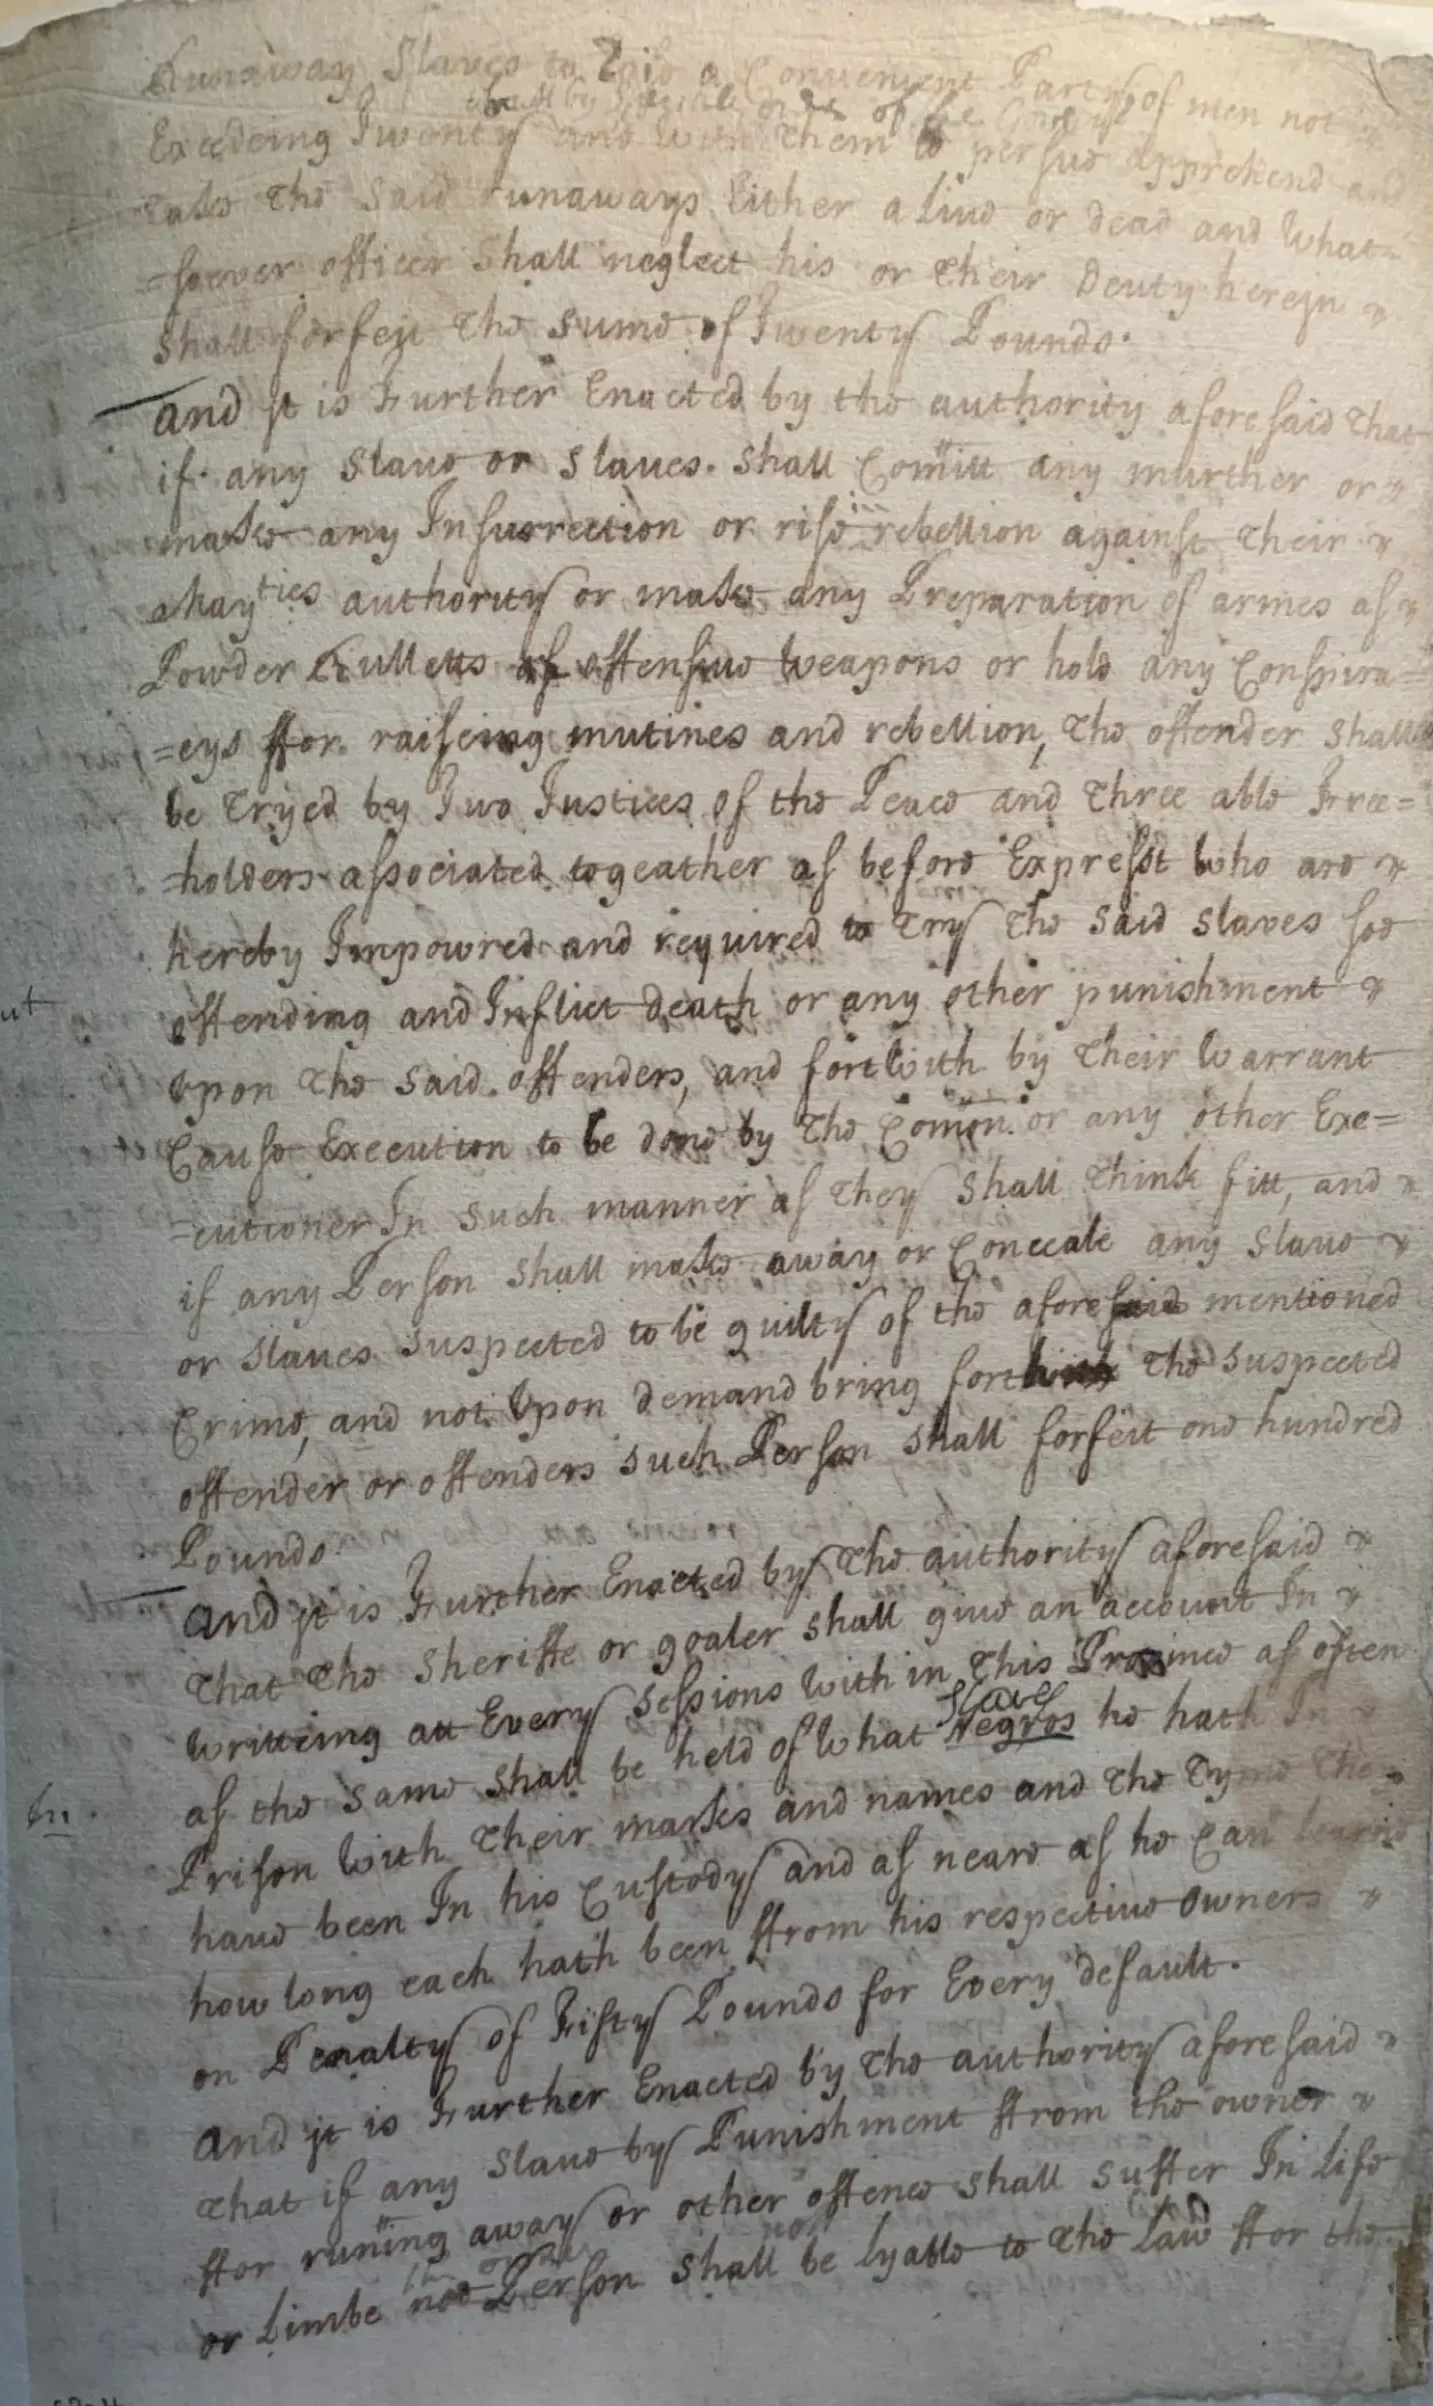 Runaway Slaves to Raise a Convenient Party of men not
Exedeing Twenty and with them to persue apprehend and
take the said runaways Either alive or dead and What=
=soever officer Shall neglect his or their Deuty herein
Shall forfeit the sume of Twenty Pounds.
And it is Further Enacted by the authority aforesaid That
if any Slave or Slaves Shall Comitt any murther or
make any Insurrection or rise in rebellion against their
Mayties authority or make any Preparation of armes as
Powder Bulletts as offensive Weapons or hold any Conspira=
=cys ffor raiseing mutines and rebellion, The offender Shall
be Tryed by Two Justices of the Peace and Three able Free=
=holders associated togeather as before Expresst Who are
hereby Impowred and required to Try The Said Slaves soe
offending and Inflict death or any other punishment
Upon The Said offenders, and fortWith by Their Warrant
Cause Execution to be done by The Comon or any other Exe=
=cutioner In Such manner as They Shall Think fitt, and
if any Person Shall make away or Conceale any Slave
or Slaves Suspected to be guilty of the aforesaid mentioned
Crime, and not Upon demand bring forth The Suspected
offender or offenders Such Person Shall forfeit one hundred
Pounds.
And it is Further Enacted by The authority aforesaid
That The Sheriffe or goaler Shall give an account In
Writteing att Every Sessions With in This Province as often
as the Same Shall be held of What Negros he hath In
Slaves
Prison With Their markes and names and The Tyme The
have been In his Custody and as neare as he Can learne
how long each hath been ffrom his respective Owners
on Penalty of Fifty Pounds for Every default.
And it is Further Enacted by The authority aforesaid
That if any Slave by Punishment ffrom the owner
ffor runing away or other offence Shall Suffer In Life
or Limbe noe Person Shall be Lyable to The Law ffor the
In